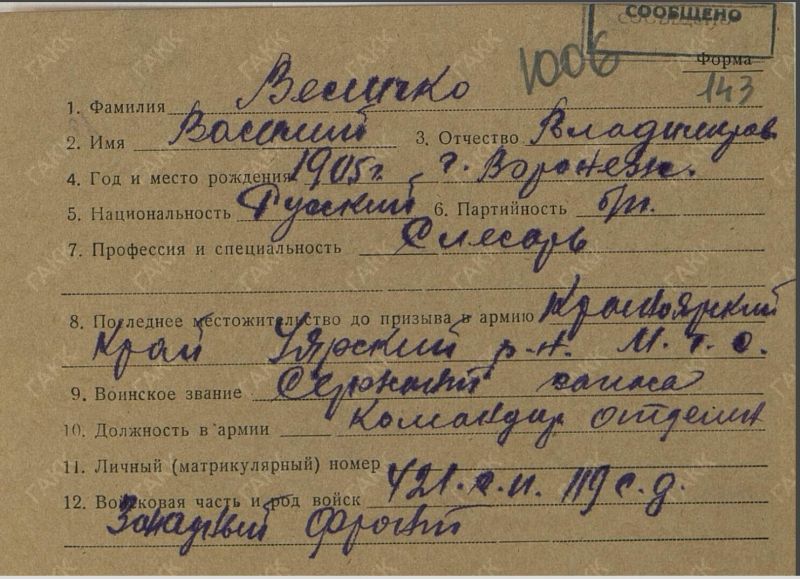 СООБЩЕНО
1006
Форма
143
1. Фамилия Величко
2. Имя Василий 3. Отчество Владимиров
4. Год и место рождения 1905 г. г. Воронеж.
5. Национальность Русский 6. Партийность б/п.
7. Профессия и специальность Слесарь
8. Последнее местожительство до призыва в армию Красноярский
Край Уярский р-н. М.т.с.
9. Воинское звание Сержант запаса
10. Должность в армии Командир отделен
11. Личный (матрикулярный) номер
12. Войсковая часть и род войск 421.с.п. 119 с.д.
Западный фронт